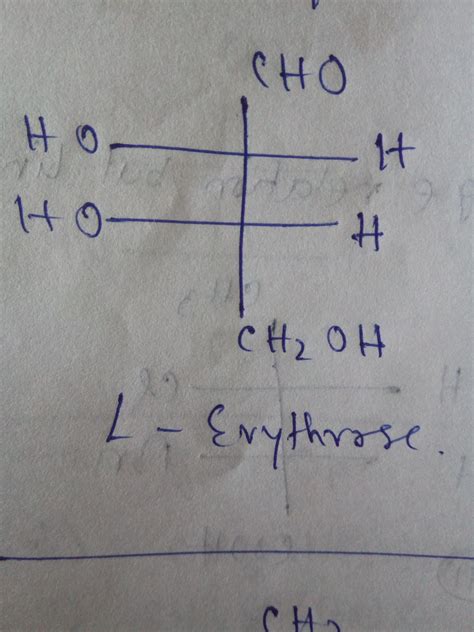 CHO
HO H
HO H
CH2OH
L - Erythrose.
CH2